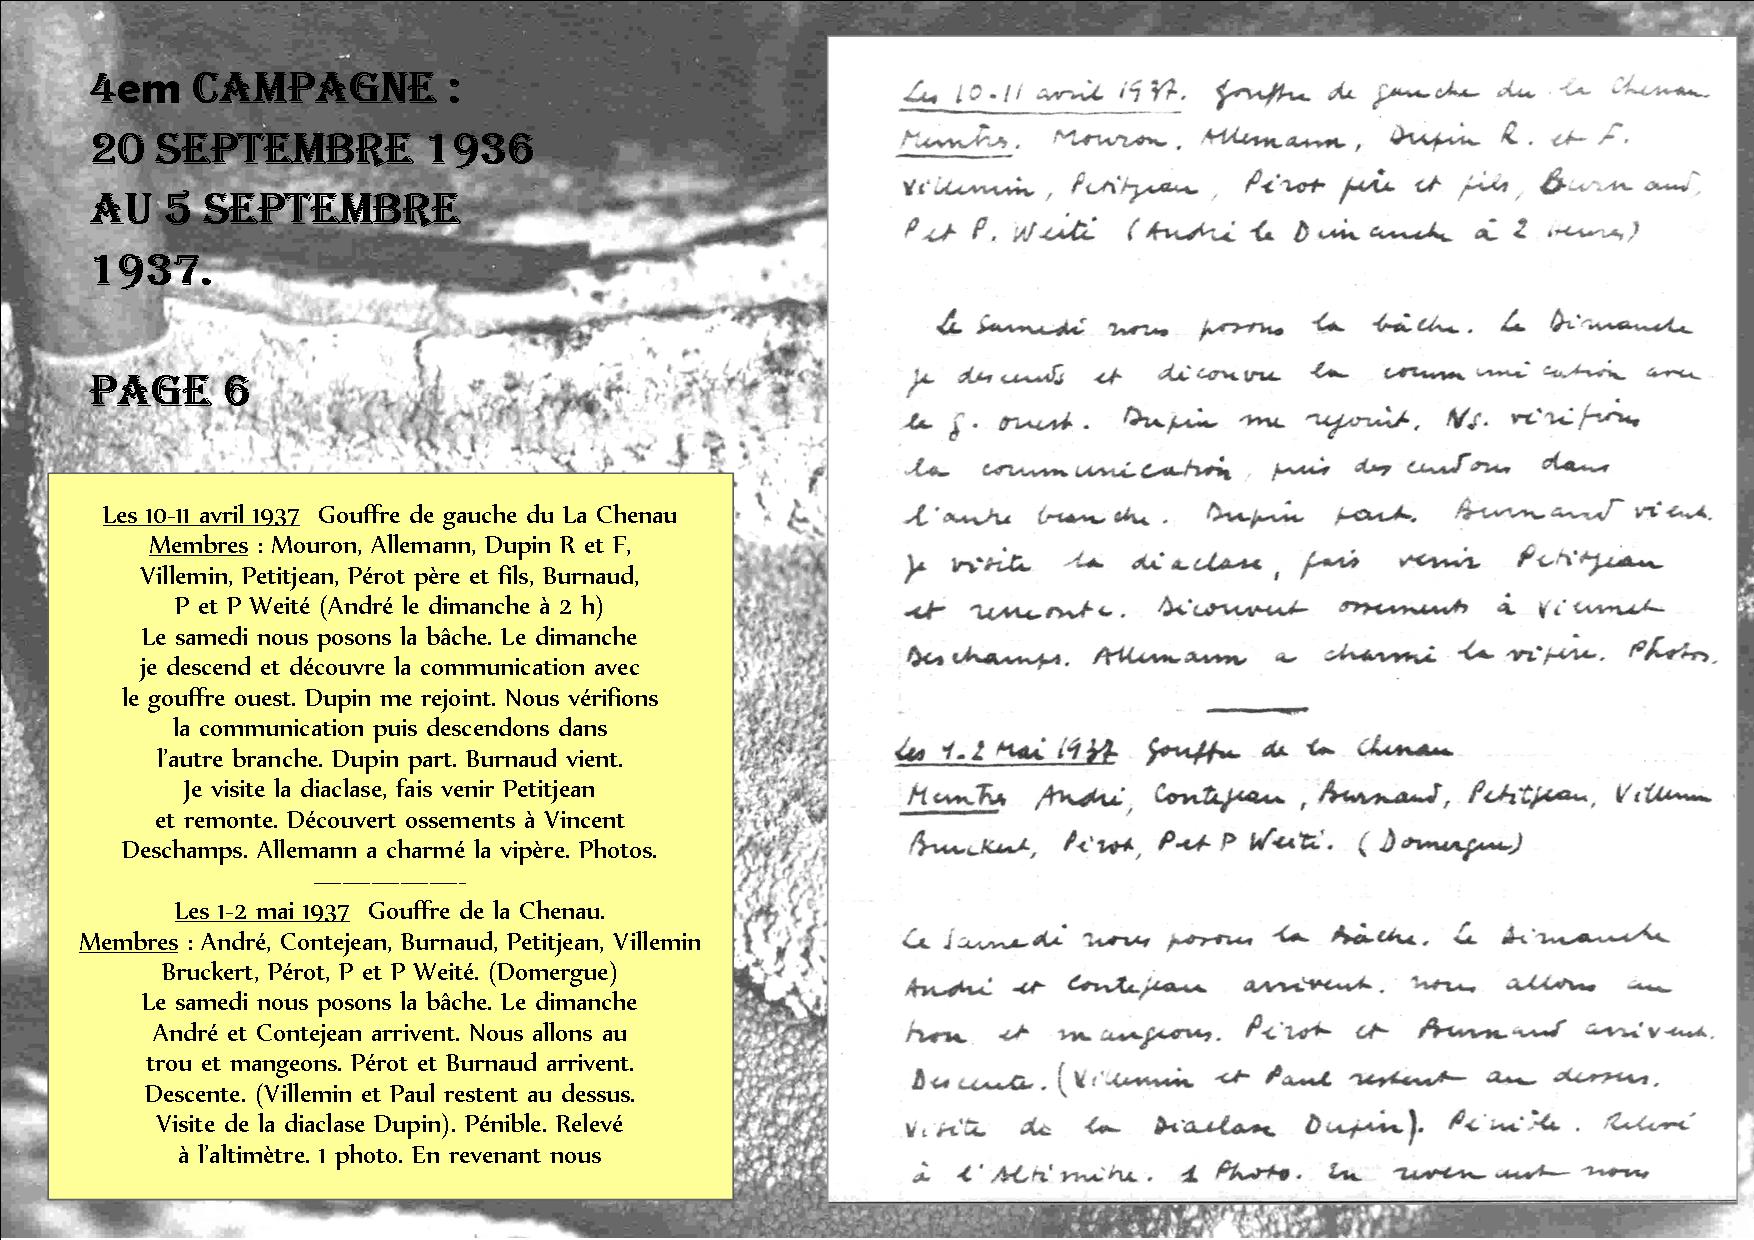 4em CAMPAGNE :
20 SEPTEMBRE 1936
AU 5 SEPTEMBRE
1937.
PAGE 6
Les 10-11 avril 1937 Gouffre de gauche du La Chenau
Membres : Mouron, Allemann, Dupin R et F,
Villemin, Petitjean, Pérot père et fils, Burnaud,
P et P Weité (André le dimanche à 2 h)
Le samedi nous posons la bâche. Le dimanche
je descend et découvre la communication avec
le gouffre ouest. Dupin me rejoint. Nous vérifions
la communication puis descendons dans
l'autre branche. Dupin part. Burnaud vient.
Je visite la diaclase, fais venir Petitjean
et remonte. Découvert ossements à Vincent
Deschamps. Allemann a charmé la vipère. Photos.
————————-
Les 1-2 mai 1937 Gouffre de la Chenau.
Membres : André, Contejean, Burnaud, Petitjean, Villemin
Bruckert, Pérot, P et P Weité. (Domergue)
Le samedi nous posons la bâche. Le dimanche
André et Contejean arrivent. Nous allons au
trou et mangeons. Pérot et Burnaud arrivent.
Descente. (Villemin et Paul restent au dessus.
Visite de la diaclase Dupin). Pénible. Relevé
à l'altimètre. 1 photo. En revenant nous
Les 10-11 avril 1937. Gouffre de gauche du la Chenau.
Membres. Mouron, Allemann, Dupin R. et F.
Villemin, Petitjean, Pérot père et fils, Burnaud,
P et P. Weité (André le Dimanche à 2 heures)
Le Samedi nous posons la bâche. Le Dimanche
je descends et découvre la communication avec
le g. ouest. Dupin me rejoint. Ns. vérifions
la communication, puis descendons dans
l'autre branche. Dupin part. Burnaud vient.
Je visite la diaclase, fais venir Petitjean
et remonte. Découvert ossements à Vincent
Deschamps. Allemann a charmé la vipère. Photos.
Les 1-2 Mai 1937 Gouffre de la Chenau
Membres André, Contejean, Burnaud, Petitjean, Villemin
Bruckert, Pérot, P et P Weité. (Domergue)
Le Samedi nous posons la bâche. Le Dimanche
André et Contejean arrivent. nous allons au
trou et mangeons. Pérot et Burnaud arrivent.
Descente. (Villemin et Paul restent au dessus.
Visite de la Diaclase Dupin). Pénible. Relevé
à l'Altimètre. 1 Photo. En revenant nous